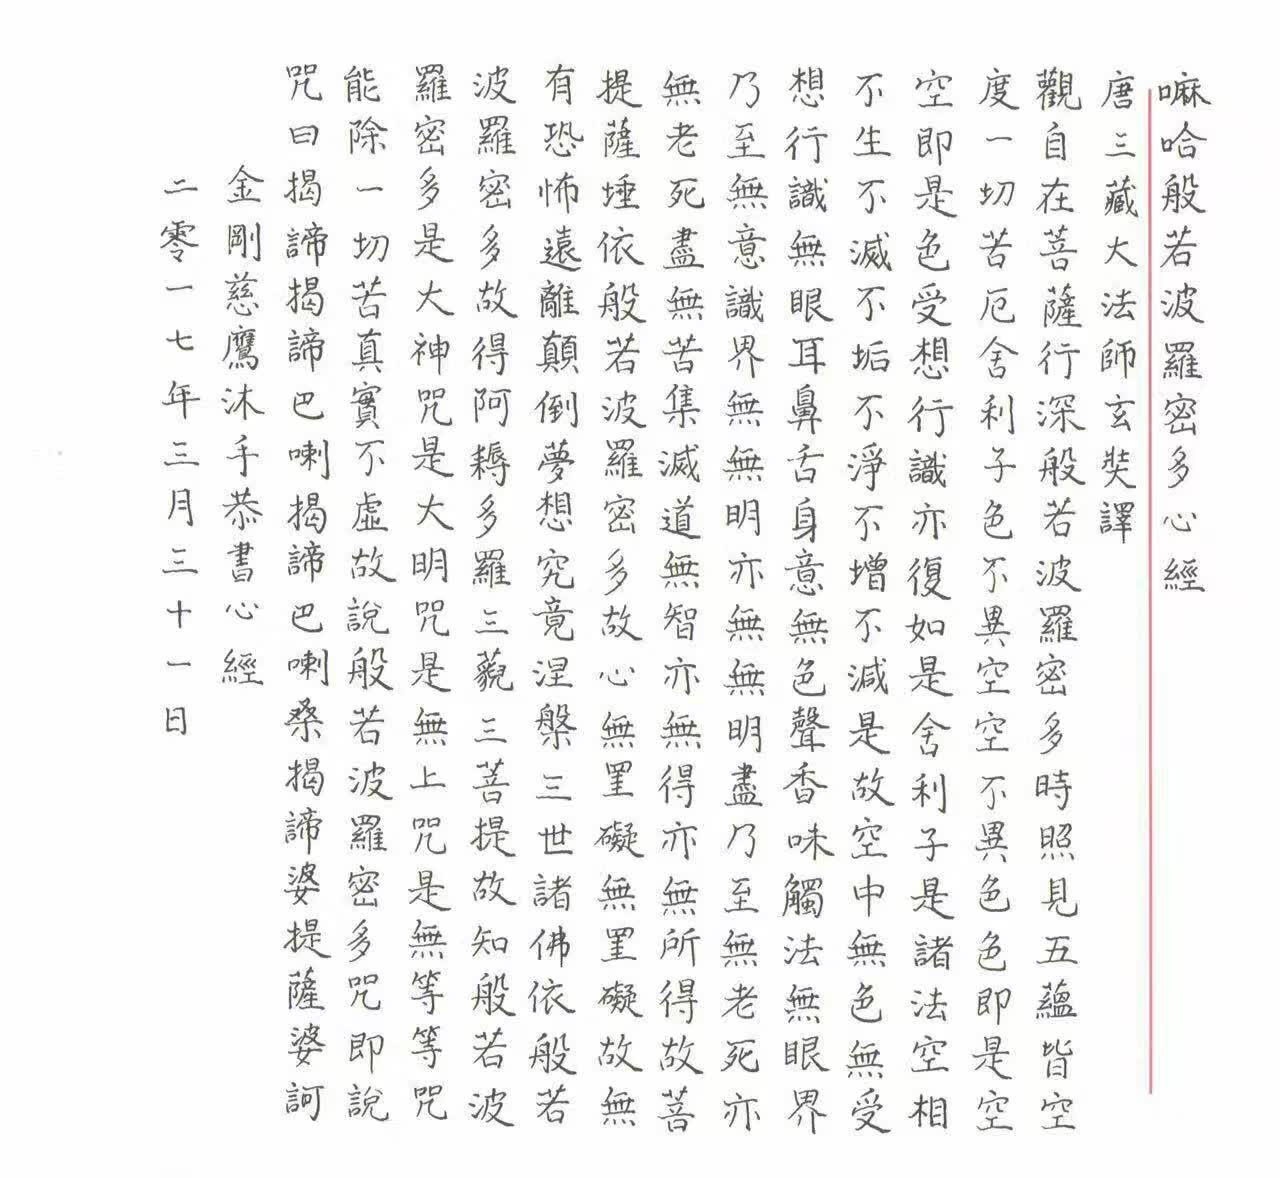 嘛哈般若波羅密多心經
唐三藏大法師玄奘譯
觀自在菩薩行深般若波羅密多時照見五蘊皆空
度一切苦厄舍利子色不異空空不異色色即是空
空即是色受想行識亦復如是舍利子是諸法空相
不生不滅不垢不淨不增不減是故空中無色無受
想行識無眼耳鼻舌身意無色聲香味觸法無眼界
乃至無意識界無無明亦無無明盡乃至無老死亦
無老死盡無苦集滅道無智亦無得亦無所得故菩
提薩埵依般若波羅密多故心無罣礙無罣礙故無
有恐怖遠離顛倒夢想究竟涅槃三世諸佛依般若
波羅密多故得阿耨多羅三藐三菩提故知般若波
羅密多是大神咒是大明咒是無上咒是無等等咒
能除一切苦真實不虛故說般若波羅密多咒即說
咒曰揭諦揭諦巴喇揭諦巴喇桑揭諦婆提薩婆訶
金剛慈鷹沐手恭書心經
二零一七年三月三十一日